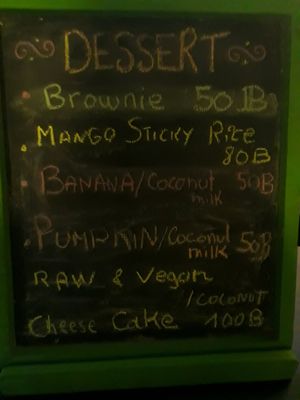 DESSERT
Brownie 50B
MANGO STICKY RICE
80B
BANANA/Coconut 50B
milk
PUMPKIN/Coconut 50B
milk
RAW & Vegan
/COCONUT
Cheese Cake 100B